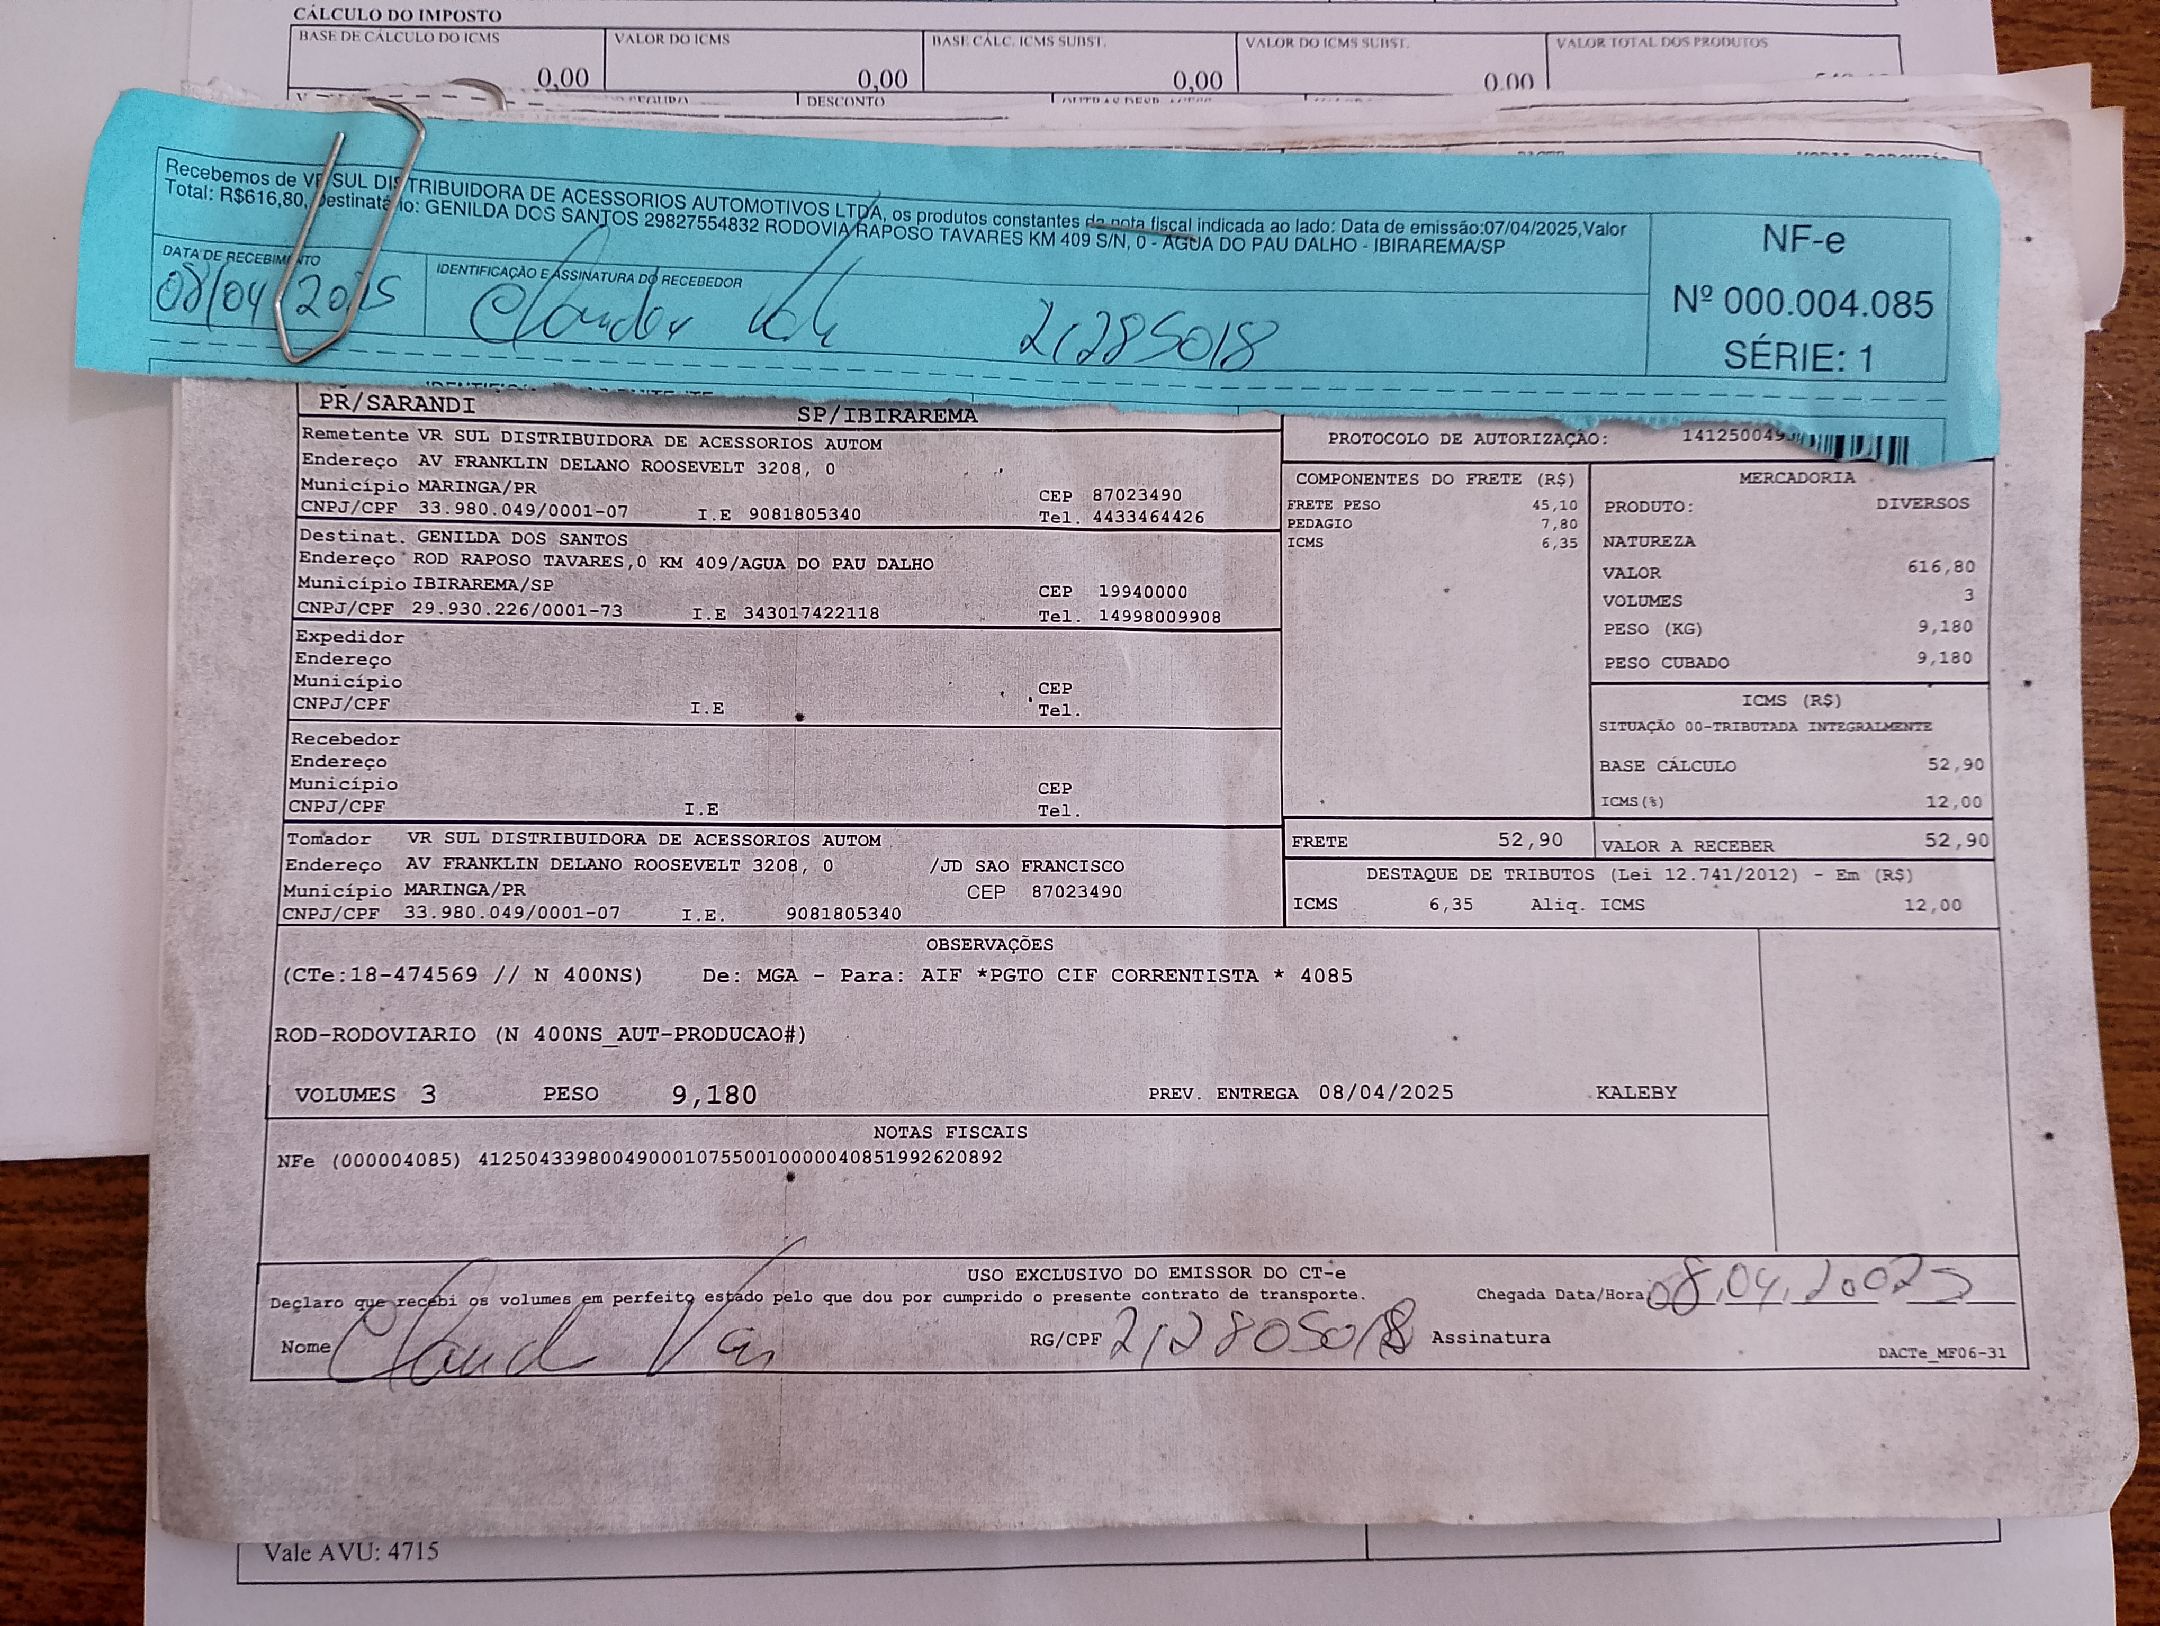 CÁLCULO DO IMPOSTO
BASE DE CÁLCULO DO ICMS VALOR DO ICMS BASE CÁLC. ICMS SUBST. VALOR DO ICMS SUBST. VALOR TOTAL DOS PRODUTOS
0,00 0,00 0,00 0,00
DESCONTO
Recebemos de VR SUL DISTRIBUIDORA DE ACESSORIOS AUTOMOTIVOS LTDA, os produtos constantes da nota fiscal indicada ao lado: Data de emissão:07/04/2025,Valor
Total: R$616,80, Destinatário: GENILDA DOS SANTOS 29827554832 RODOVIA RAPOSO TAVARES KM 409 S/N, 0 - AGUA DO PAU DALHO - IBIRAREMA/SP
DATA DE RECEBIMENTO IDENTIFICAÇÃO E ASSINATURA DO RECEBEDOR
08/04/2025 21285018
NF-e
Nº 000.004.085
SÉRIE: 1
PR/SARANDI SP/IBIRAREMA
Remetente VR SUL DISTRIBUIDORA DE ACESSORIOS AUTOM
Endereço AV FRANKLIN DELANO ROOSEVELT 3208, 0
Município MARINGA/PR CEP 87023490
CNPJ/CPF 33.980.049/0001-07 I.E 9081805340 Tel. 4433464426
Destinat. GENILDA DOS SANTOS
Endereço ROD RAPOSO TAVARES,0 KM 409/AGUA DO PAU DALHO
Município IBIRAREMA/SP CEP 19940000
CNPJ/CPF 29.930.226/0001-73 I.E 343017422118 Tel. 14998009908
Expedidor
Endereço
Município CEP
CNPJ/CPF I.E Tel.
Recebedor
Endereço
Município CEP
CNPJ/CPF I.E Tel.
Tomador VR SUL DISTRIBUIDORA DE ACESSORIOS AUTOM
Endereço AV FRANKLIN DELANO ROOSEVELT 3208, 0 /JD SAO FRANCISCO
Município MARINGA/PR CEP 87023490
CNPJ/CPF 33.980.049/0001-07 I.E. 9081805340
PROTOCOLO DE AUTORIZAÇÃO:
COMPONENTES DO FRETE (R$)
FRETE PESO 45,10
PEDAGIO 7,80
ICMS 6,35
MERCADORIA
PRODUTO: DIVERSOS
NATUREZA
VALOR 616,80
VOLUMES 3
PESO (KG) 9,180
PESO CUBADO 9,180
ICMS (R$)
SITUAÇÃO 00-TRIBUTADA INTEGRALMENTE
BASE CÁLCULO 52,90
ICMS(%) 12,00
FRETE 52,90 VALOR A RECEBER 52,90
DESTAQUE DE TRIBUTOS (Lei 12.741/2012) - Em (R$)
ICMS 6,35 Aliq. ICMS 12,00
OBSERVAÇÕES
(CTe:18-474569 // N 400NS) De: MGA - Para: AIF *PGTO CIF CORRENTISTA * 4085
ROD-RODOVIARIO (N 400NS_AUT-PRODUCAO#)
VOLUMES 3 PESO 9,180 PREV. ENTREGA 08/04/2025 KALEBY
NOTAS FISCAIS
NFe (000004085) 41250433980049000107550010000040851992620892
USO EXCLUSIVO DO EMISSOR DO CT-e
Declaro que recebi os volumes em perfeito estado pelo que dou por cumprido o presente contrato de transporte. Chegada Data/Hora
Nome RG/CPF Assinatura
DACTe_MF06-31
Vale AVU: 4715